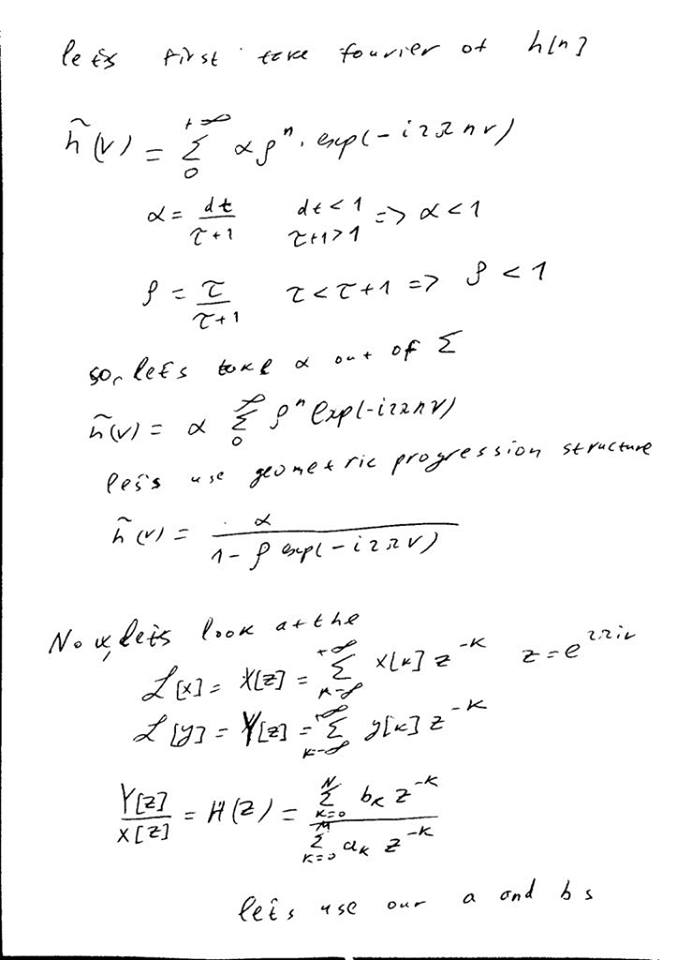 let's first take fourier of h[n]
h̃(ν) = Σ_0^{+∞} αρ^n · exp(-i2πnν)
α = dt/(τ+1)   dt<1   τ+1>1   => α<1
ρ = τ/(τ+1)   τ<τ+1 => ρ<1
so, let's take α out of Σ
h̃(ν) = α Σ_0^∞ ρ^n exp(-i2πnν)
let's use geometric progression structure
h̃(ν) = α/(1-ρ exp(-i2πν))
Now, let's look at the
ℒ[x] = X[z] = Σ_{k=-∞}^{+∞} x[k] z^{-k}   z=e^{2πiν}
ℒ[y] = Y[z] = Σ_{k=-∞}^{+∞} y[k] z^{-k}
Y[z]/X[z] = H(z) = Σ_{k=0}^{N} b_k z^{-k} / Σ_{k=0}^{M} a_k z^{-k}
let's use our a and b s